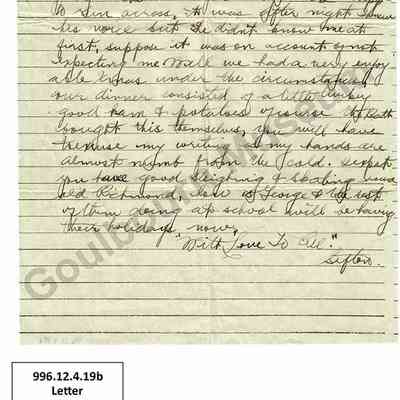 to him across, it was after night I knew
his voice but he didn't know me at
first, suppose it was on account of not
expecting me. Well we had a very enjoy
able Xmas under the circumstances
our dinner consisted of a little turkey
good ham & potatoes of course
bought this themselves, you will have
to excuse my writing as my hands are
almost numb from the cold.
you have good sleighing & skating
old Richmond, how is George & the rest
of them doing at school will be having
their holidays now.
"With Love To All."
Sifton.
Goulbourn Museum
996.12.4.19b
Letter